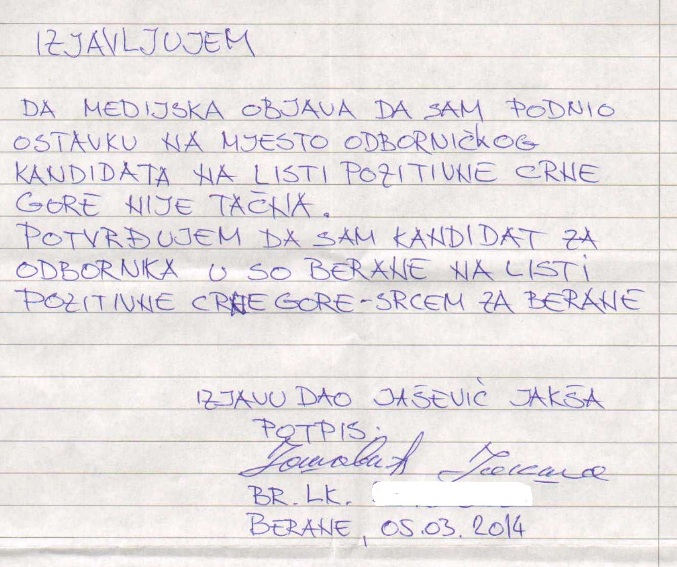 IZJAVLJUJEM
DA MEDIJSKA OBJAVA DA SAM PODNIO
OSTAVKU NA MJESTO ODBORNIČKOG
KANDIDATA NA LISTI POZITIVNE CRNE
GORE NIJE TAČNA.
POTVRĐUJEM DA SAM KANDIDAT ZA
ODBORNIKA U SO BERANE NA LISTI
POZITIVNE CRNE GORE-SRCEM ZA BERANE
IZJAVU DAO JAŠEVIĆ JAKŠA
POTPIS:
BR. LK.
BERANE, 05.03.2014